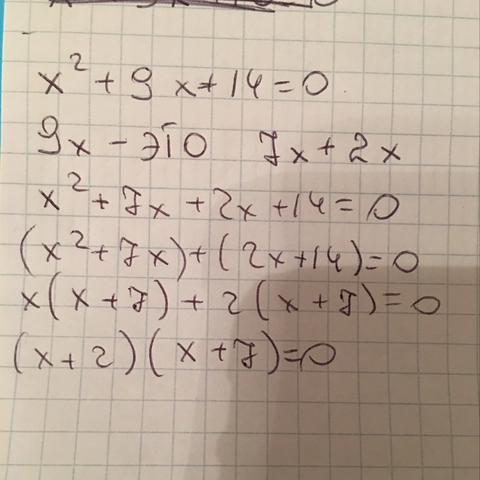 x² + 9x + 14 = 0
9x - это 7x + 2x
x² + 7x + 2x + 14 = 0
(x² + 7x) + (2x + 14) = 0
x(x + 7) + 2(x + 7) = 0
(x + 2)(x + 7) = 0